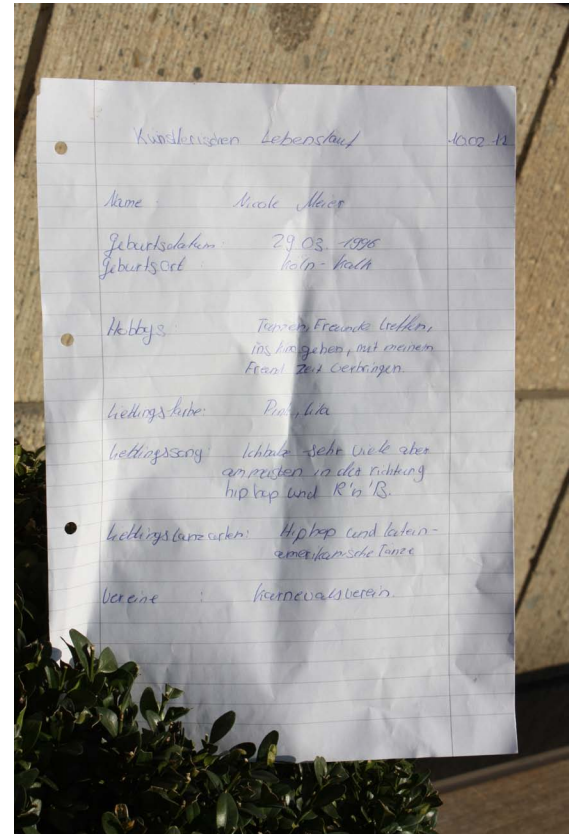 Künstlerischen Lebenslauf 10.02.12
Name : Nicole Meier
Geburtsdatum: 29.03.1996
Geburtsort : Köln-Kalk
Hobbys Tanzen, Freunde treffen,
ins Kino gehen, mit meinem
Freund Zeit verbringen.
Lieblingsfarbe: Pink, Lila
Lieblingssong: Ich habe sehr viele aber
am meisten in der richtung
hip hop und R'n'B.
Lieblingstanzarten: Hip hop und latein-
amerikanische Tänze
Vereine : Karnevalsverein.